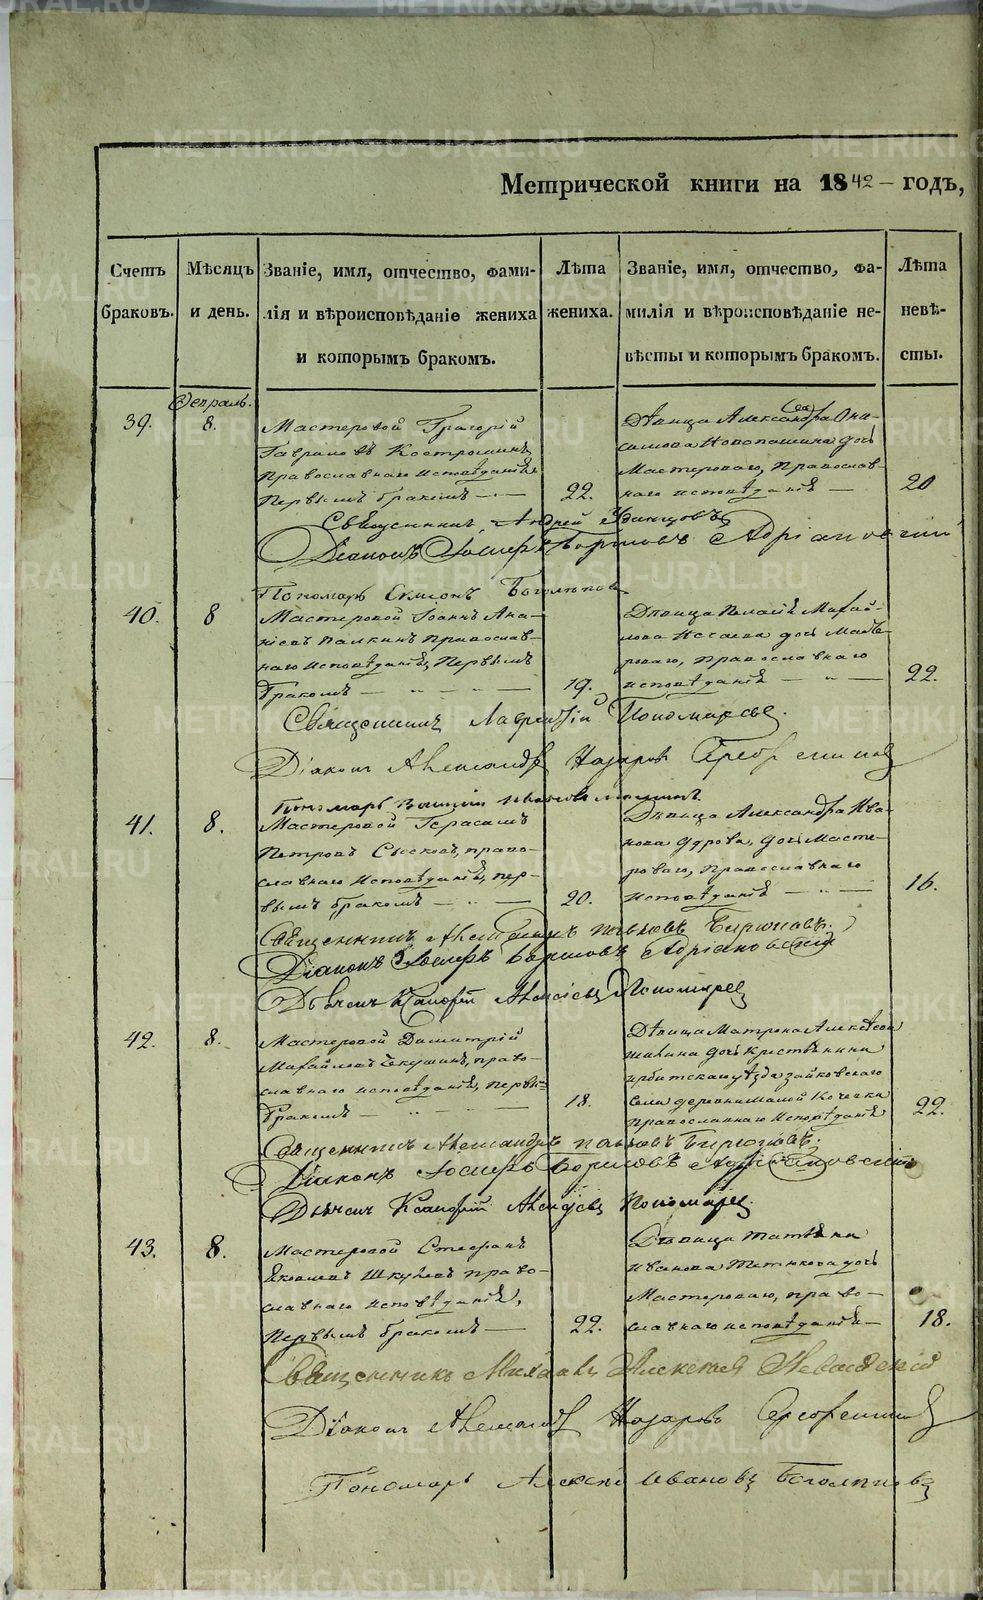 Метрической книги на 1842 - годъ,
Счетъ браковъ.
Мѣсяцъ и день.
Званіе, имя, отчество, фами-
лія и вѣроисповѣданіе жениха
и которымъ бракомъ.
Лѣта
жениха.
Званіе, имя, отчество, фа-
милія и вѣроисповѣданіе не-
вѣсты и которымъ бракомъ.
Лѣта
невѣ-
сты.
Февраль.
39.
8.
Мастеровой Григорій
Гавриловъ Костроминъ
Православнаго исповѣданія
Первымъ бракомъ
22.
Дѣвица Александра Они-
симова Новопашина дочь
Мастероваго, Православ-
наго исповѣданія
20
Священникъ Андрей Удинцовъ
Діаконъ Іосифъ Борисовъ Адріановскій
Пономарь Симеонъ Боголѣповъ
40.
8
Мастеровой Іоаннъ Ана-
ніевъ Палкинъ православ-
наго исповѣданія, Первымъ
бракомъ
19.
Дѣвица Пелагія Михай-
лова дочь Масте-
роваго, православнаго
исповѣданія
22.
Священникъ Лаврентій Пономаревъ.
Діаконъ Александръ Назаровъ Серебренниковъ
Пономарь
41.
8.
Мастеровой Герасимъ
Петровъ Сысковъ, право-
славнаго исповѣданія, пер-
вымъ бракомъ
20.
Дѣвица Александра Ива-
нова дочь Масте-
роваго, Православнаго
исповѣданія
16.
Священникъ Александръ Павловъ Бирюковъ.
Діаконъ Іосифъ Борисовъ Адріановскій
Дьячекъ Ксенофонтъ Алексіевъ Пономаревъ
42.
8.
Мастеровой Димитрій
Михайловъ Чекушинъ, право-
славнаго исповѣданія, первы-
бракомъ
18.
Дѣвица Матрона Алексѣева
дочь крестьянина
ирбитскаго уѣзда зайковскаго
села деревни малой Кочевки
православнаго исповѣданія
22.
Священникъ Александръ Павловъ Бирюковъ.
Діаконъ Іосифъ Борисовъ Адріановскій
Дьячекъ Ксенофонтъ Алексіевъ Пономаревъ
43.
8.
Мастеровой Стефанъ
Яковлевъ право-
славнаго исповѣданія,
Первымъ бракомъ
22.
Дѣвица Татьяна
Иванова дочь
Мастероваго, право-
славнаго исповѣданія
18.
Священникъ Михаилъ Алексѣевъ
Діаконъ Александръ Назаровъ Серебренниковъ
Пономарь Алексѣй Ивановъ Боголѣповъ
METRIKI.GASO-URAL.RU